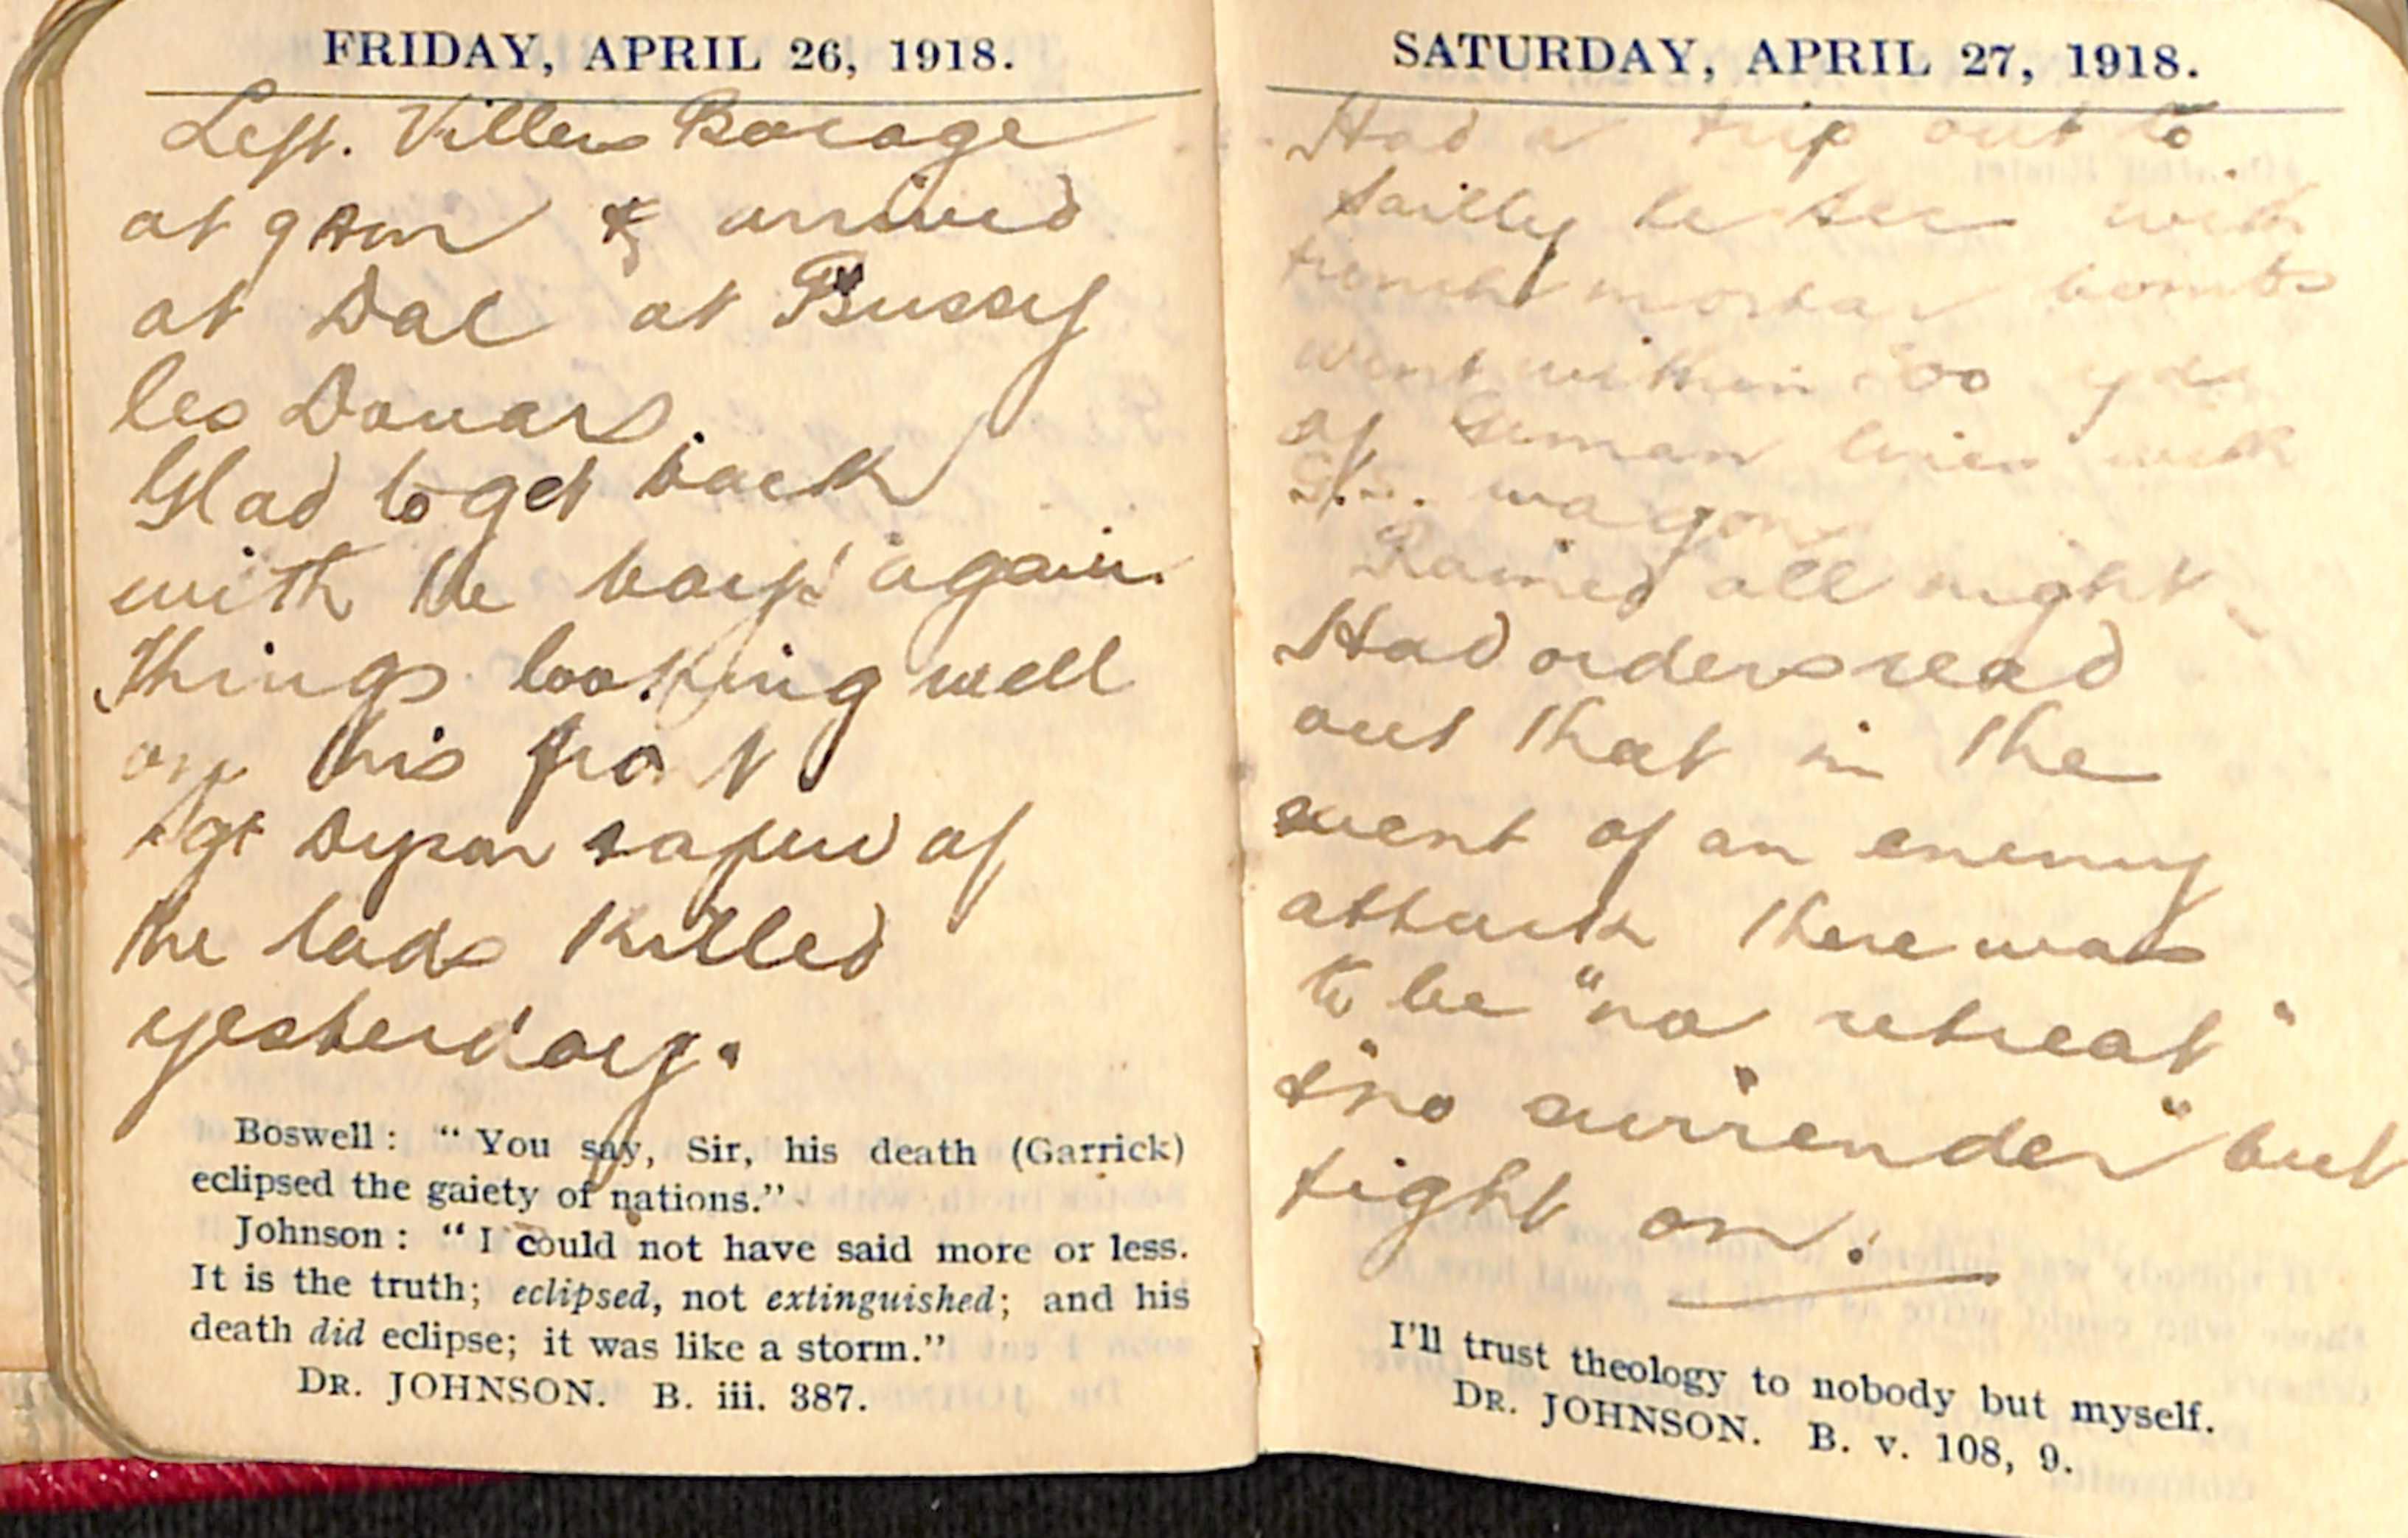 FRIDAY, APRIL 26, 1918.
Left. Villers Bocage
at 9 am & arrived
at Dac at Bussy
les Douars.
Glad to get back
with the boys again.
Things looking well
on this front
Sgt Dyson & a few of
the lads killed
yesterday.
Boswell : “ You say, Sir, his death (Garrick)
eclipsed the gaiety of nations.”
Johnson : “ I could not have said more or less.
It is the truth; eclipsed, not extinguished; and his
death did eclipse; it was like a storm.”
DR. JOHNSON. B. iii. 387.
SATURDAY, APRIL 27, 1918.
Had a trip out to
Sailly le Sec with
trench mortar bombs
went within 00 yds
of German lines with
G.S. wagon
Rained all night
Had orders read
out that in the
event of an enemy
attack there was
to be "no retreat"
& "no surrender" but
fight on.
I'll trust theology to nobody but myself.
DR. JOHNSON. B. v. 108, 9.